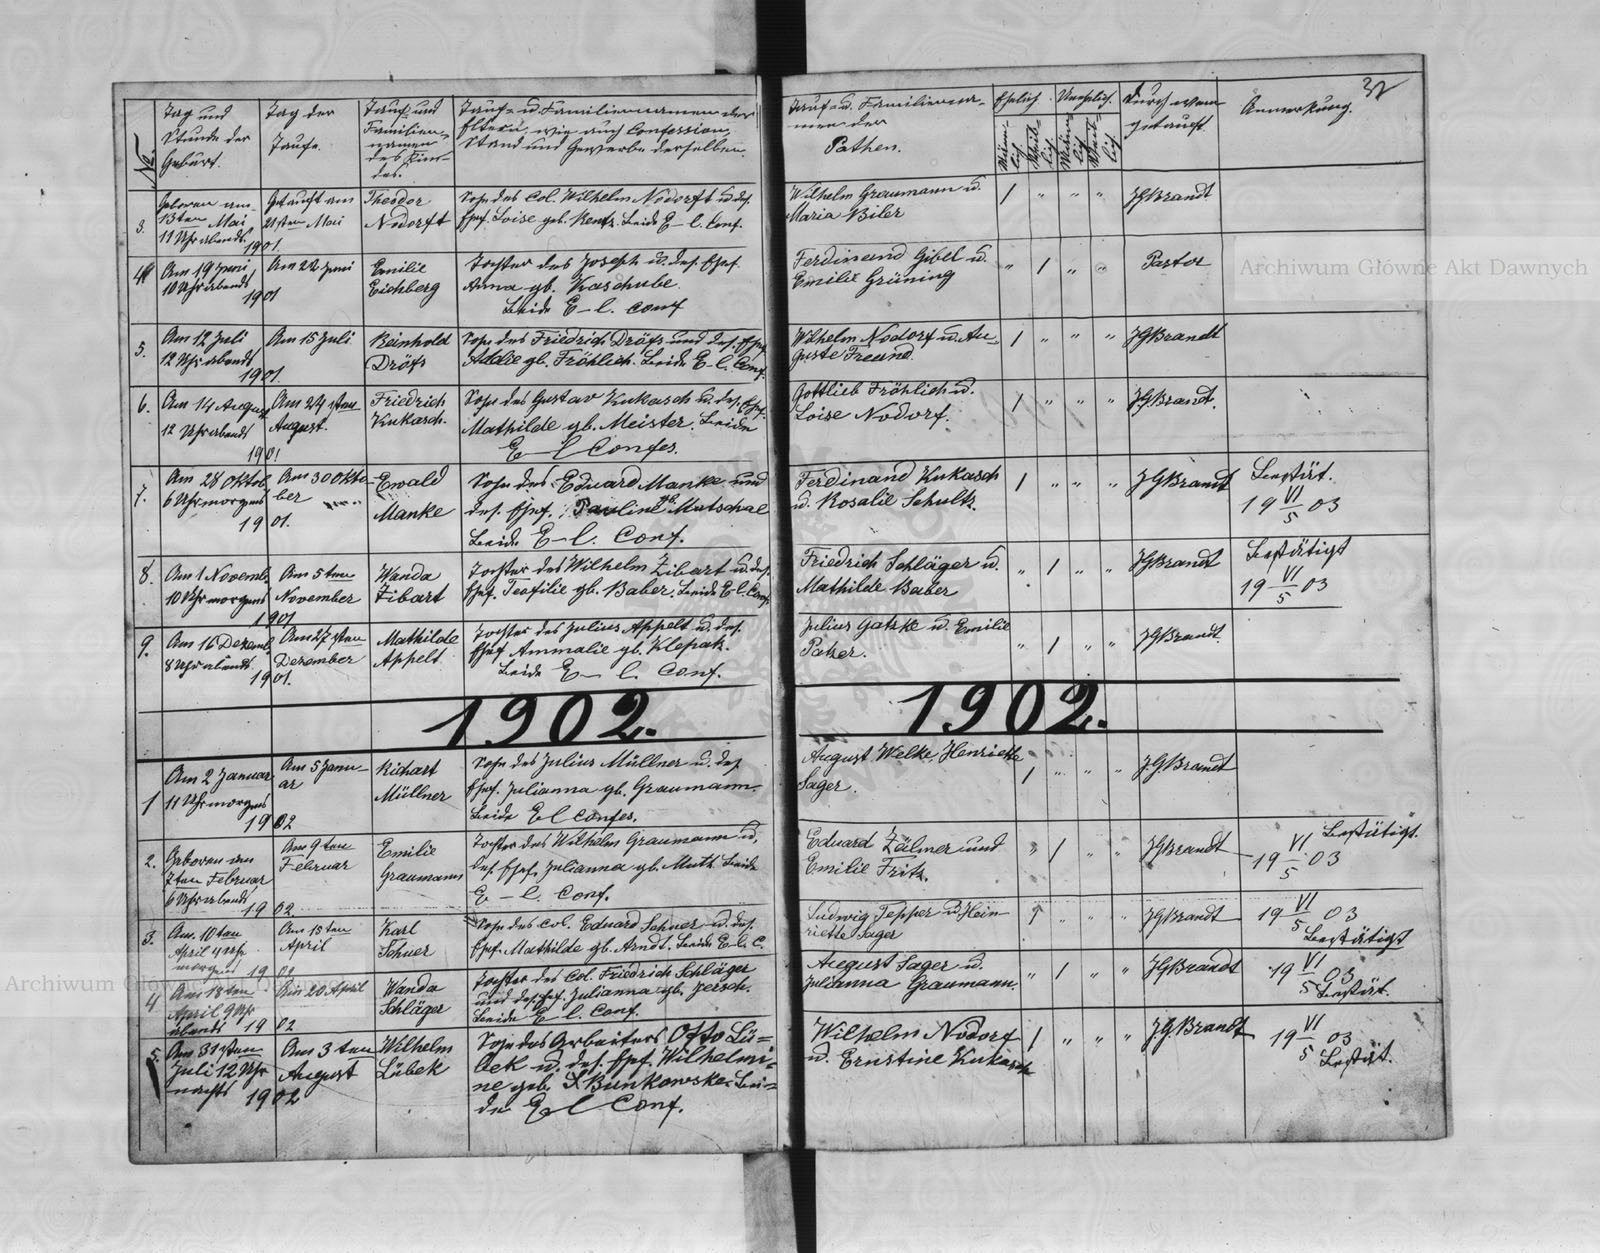 32
No.
Tag und
Stunde der
Geburt.
Tag der
Taufe.
Tauf- und
Familien-
namen
des Kin-
des.
Tauf- u. Familiennamen der
Eltern, wie auch Confession,
Stand und Gewerbe derselben.
Tauf- u. Familienna-
men der
Pathen.
Ehelich.
Unehelich.
Männ-
lich
Weib-
lich
Männ-
lich
Weib-
lich
Durch wem
getauft.
Anmerkung.
3.
Geboren am
13ten Mai
11 Uhr abends.
1901.
Getauft am
21sten Mai
Theodor
Nodorft
Sohn des Col. Wilhelm Nodorft u. des.
Ehef. Loise geb. Rentz. beide E-l. Conf.
Wilhelm Graumann u.
Maria Biler
1 " " "
JGBrandt
4
Am 19 Juni
10 Uhr abends
1901
Am 22 Juni
Emilie
Eichberg
Tochter des Joseph u. des. Ehef.
Anna gb. Kaschube.
beide E-l. Conf
Ferdinand Gibel u.
Emilie Grüning
" 1 " "
Pastor
Archiwum Główne Akt Dawnych
5.
Am 12 Juli
12 Uhr abends
1901.
Am 15 Juli
Reinhold
Dräfs
Sohn des Friedrich Dräfs und des. Ehef.
Addle gb. Fröhlich. beide E-l. Conf.
Wilhelm Nodorf u. Au-
guste Freund.
1 " " "
JGBrandt
6.
Am 14 August
12 Uhr abends
1901
Am 24sten
August.
Friedrich
Kukasch.
Sohn des Gustav Kukasch u. des. Ehef.
Mathilde gb. Meister. beide
E-l Confes.
Gottlieb Fröhlich u.
Loise Nodorf.
1 " " "
JGBrandt.
7.
Am 28 Oktob.
6 Uhr morgens
1901.
Am 30 Okto-
ber
Ewald
Manke
Sohn des Eduard Manke und
des. Ehef. Pauline gb. Mutschal
beide E-l. Conf.
Ferdinand Kukasch
u. Rosalie Schultz.
1 " " "
JGBrandt
Bestät.
19 VI/5 03
8.
Am 1 Novemb.
10 Uhr morgens
1901
Am 5ten
November
Wanda
Zibart
Tochter des Wilhelm Zibart u. des.
Ehef. Teofilie gb. Baber. beide E l. Conf.
Friedrich Schläger u.
Mathilde Baber
" 1 " "
JGBrandt
Bestätigt
19 VI/5 03
9.
Am 16 Dezemb.
8 Uhr abends
1901.
Am 27sten
Dezember
Mathilde
Appelt
Tochter des Julius Appelt u. des.
Ehef. Ammalie gb. Klepak.
beide E-l. Conf.
Julius Gatzke u. Emilie
Patzer.
" 1 " "
JGBrandt
1902.
1902.
1
Am 2 Januar
11 Uhr morgens
1902
Am 5 Janu-
ar
Richart
Müllner
Sohn des Julius Müllner u. des
Ehef. Julianna gb. Graumann.
beide E l Confes.
August Welke, Henriette
Sager.
1 " " "
J.G.Brandt
2.
Geboren am
7ten Februar
6 Uhr abends
1902.
Am 9ten
Februar
Emilie
Graumann
Tochter des Wilhelm Graumann u.
des. Ehef. Julianna gb. Muth. beide
E-l. Conf.
Eduard Zälmer und
Emilie Fritz.
" 1 " "
JGBrandt
Bestätigt.
19 VI/5 03
3.
Am 10ten
April 4 Uhr
morgens 1902
Am 15ten
April
Karl
Schuer
Sohn des Col. Eduard Schuer u. des.
Ehef. Mathilde gb. Arndt. beide E. l. C.
Ludwig Tepper u. Hein-
riette Sager
1 " " "
JGBrandt
19 VI/5 03
Bestätigt
Archiwum Główne
4
Am 18ten
April 9 Uhr
abends 1902
Am 20 April
Wanda
Schläger
Tochter des Col. Friedrich Schläger
und des. Ehef. Julianna gb. Jersch.
beide E-l. Conf.
August Sager u.
Julianna Graumann.
" 1 " "
JGBrandt
19 VI/5 03
Bestät.
5.
Am 31sten
Juli 12 Uhr
nachts 1902
Am 3ten
August
Wilhelm
Lübek
Sohn des Arbeiters Otto Lü=
bek u. des. Ehef. Wilhelmi=
ne geb. Bunkowske. bei=
de E l Conf.
Wilhelm Nodorf
u. Ernstine Kukasch
1 " " "
J.G.Brandt
19 VI/5 03
Bestät.